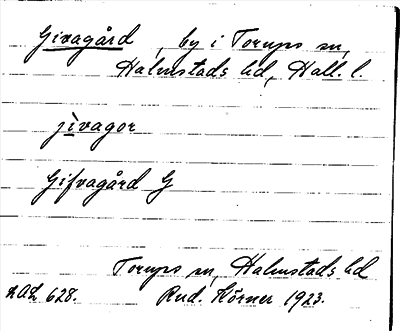 Givagård, by i Torups sn,
Halmstads hd, Hall. l.
jivagor
Gifvagård G
Torups sn, Halmstads hd
LAL 628. Rud. Körner 1923.